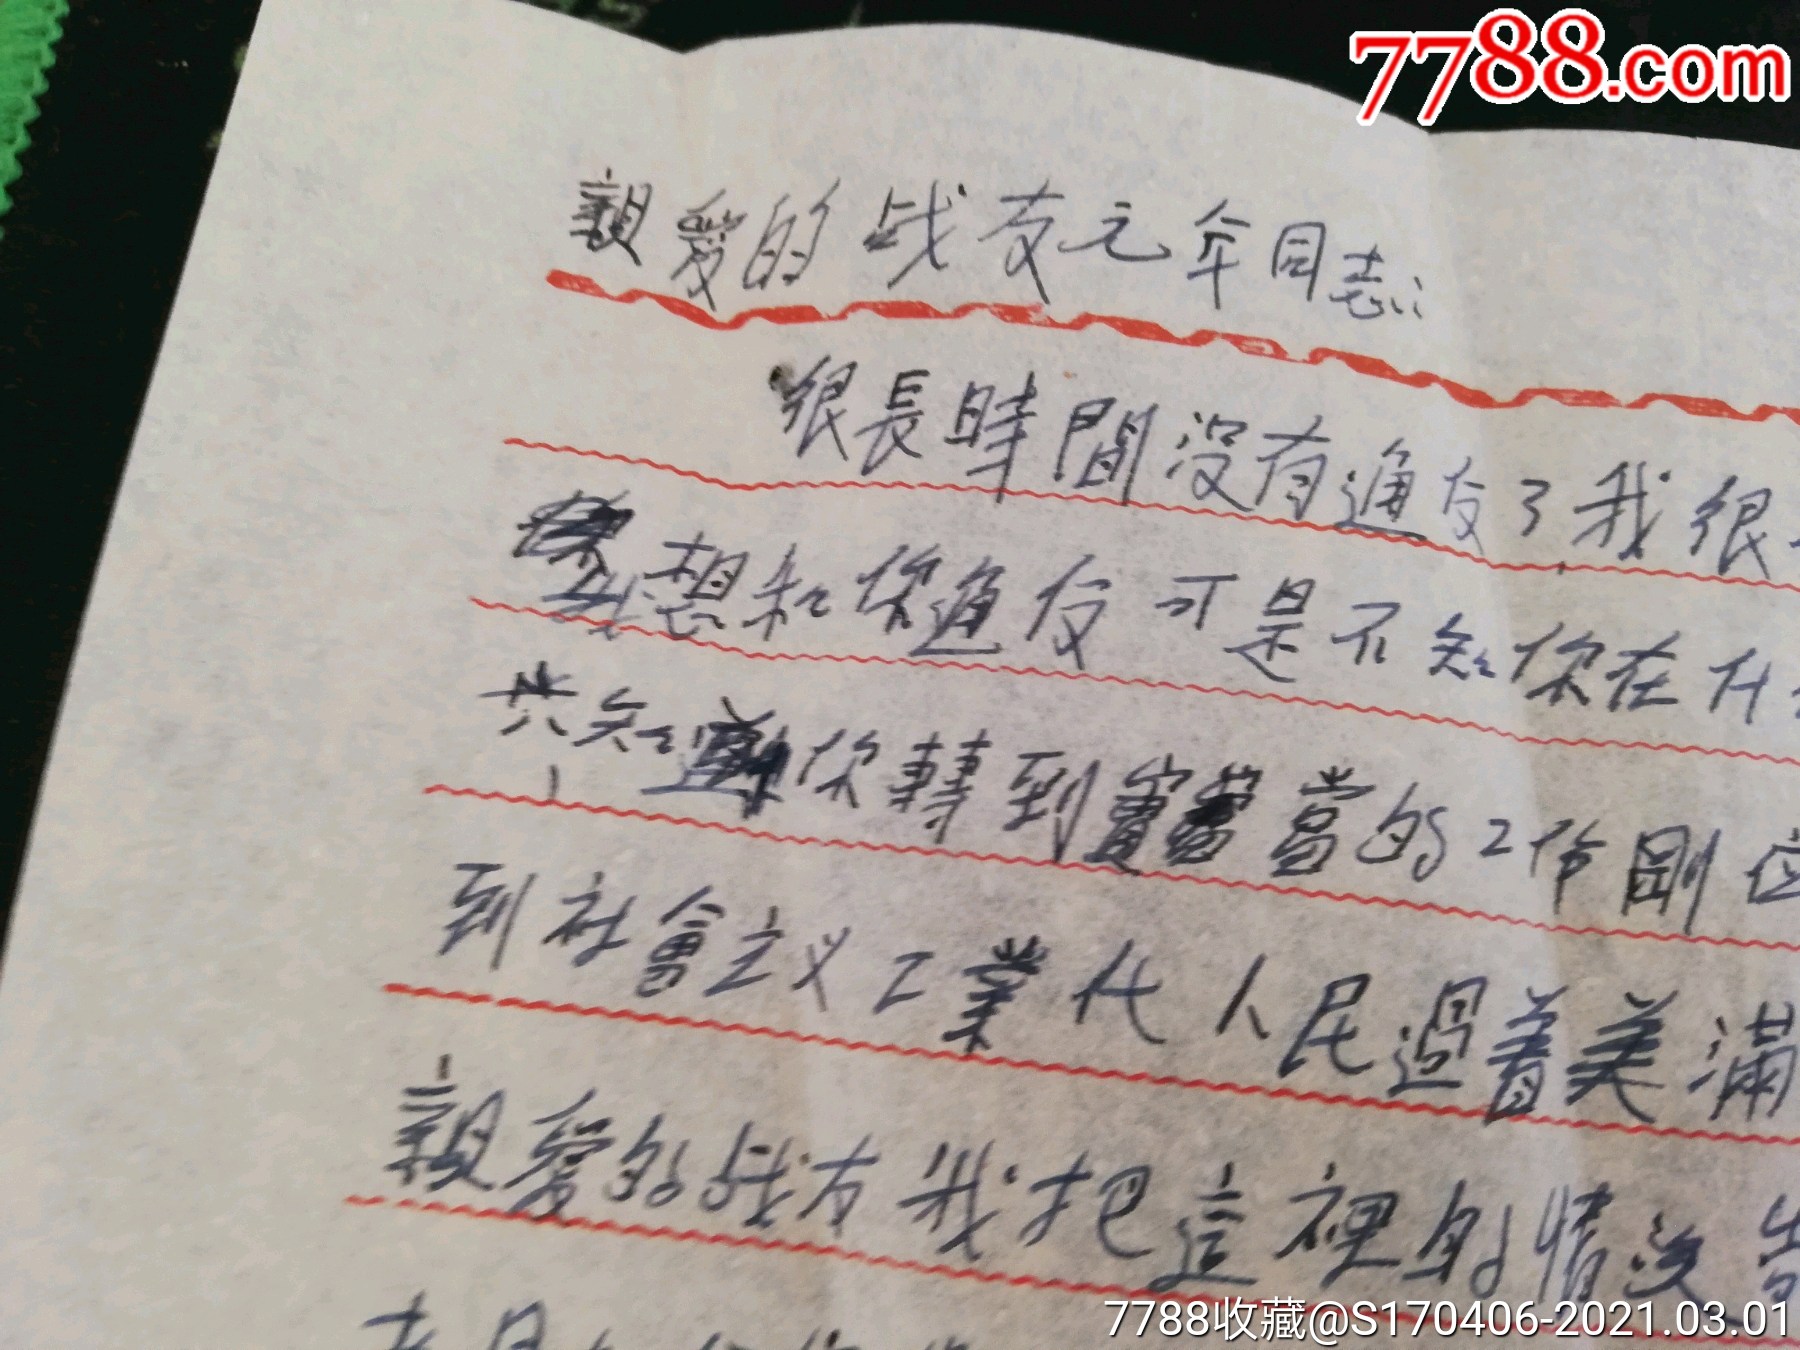 7788.com
親爱的战友元年同志:
很長時間没有通友了我很
我想和你通友可是不知你在什
共知道你轉到當的工作剛
到社會主义工業代人民過着美滿
親爱的战友我把這裡的情况
7788收藏@S170406-2021.03.01